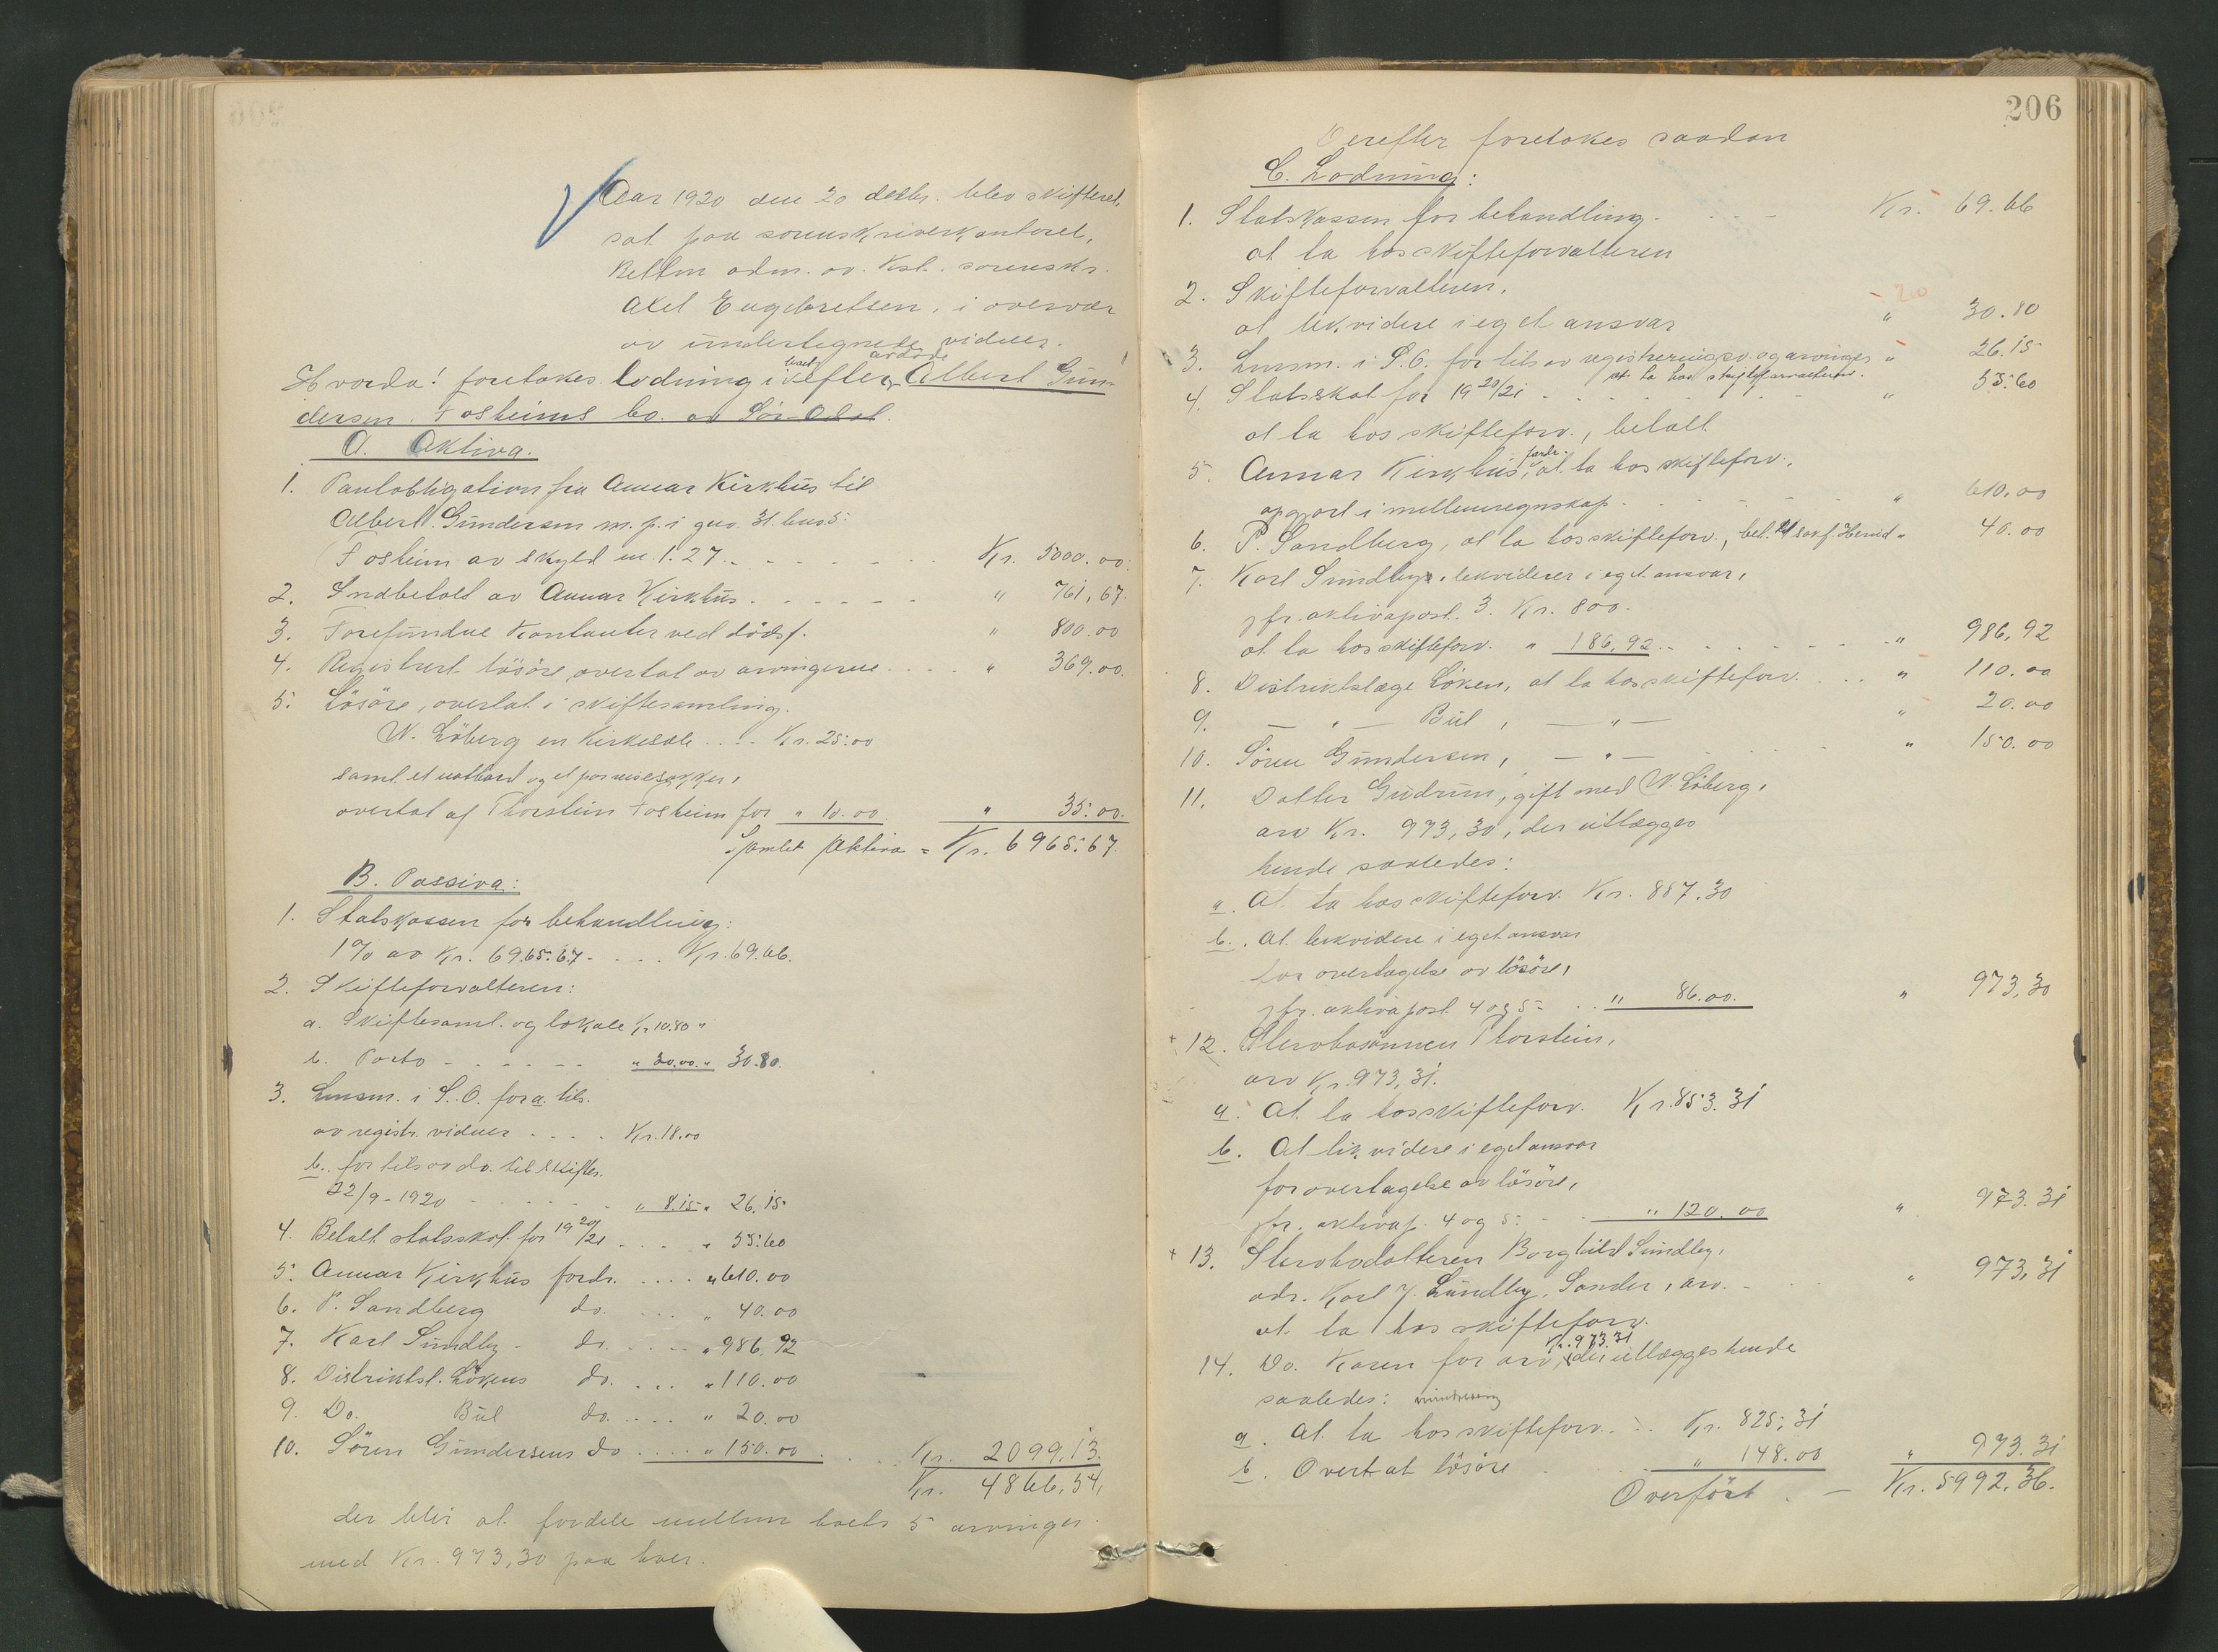 Aar 1920 den 20 decbr. blev skifteret
sat paa sorenskriverkontoret,
Retten adm. av kst. sorenskr.
Axel Engebretsen, i overvær
av undertegnede vidner.
Hvorda! foretokes lodning i boet efter avdøde Albert Gun
dersen Fosheims bo. av Sør-Odal.
A. Aktiva.
1. Pantobligation fra Annar Kirkhus til
Albert Gundersen m. p. i gno. 31. bno 5.
Fosheim av skyld m. 1.27 . . . . Kr. 5000.00.
2. Indbetalt av Annar Kirkhus . . . . " 761,67.
3. Forefundne Kontanter ved dödsf. " 800.00
4. Registrert lösöre overtat av arvingerne . . . . " 369.00.
5. Lösöre, overtat i skiftesamling.
N. Löberg en Kirkesole . . . Kr. 25.00
samt et natbord og et
overtat af Thorstein Fosheim for " 10.00. " 35.00.
Samlet Aktiva = Kr. 6965.67.
B. Passiva:
1. Statskassen for behandling:
1% av Kr. 6965.67 . . . . Kr. 69.66.
2. Skifteforvalteren:
a. Skiftesaml. og lokale Kr 10.80 "
b. Porto . . . . . " 20.00. " 30.80.
3. Lensm. i S. O. for a. tils.
av registr. vidner . . . . Kr. 18.00
b. for tils av do. til skifter.
22/9 - 1920 . . . . . " 8.15 " 26.15
4. Betalt statsskat for 1920/21 . . . . " 55.60
5. Annar Kirkhus fordr. . . . . " 610.00
6. P. Sandberg do. . . . . " 40.00
7. Karl Sundby - do. . . . . " 986.92
8. Distriktsl. Lökens do. . . . " 110.00
9. Do. Bul do. . . . . " 20.00
10. Sören Gundersens do . . . . " 150.00 . . . Kr. 2099.13.
Kr. 4866.54,
der blir at fordele mellem boets 5 arvinger.
med Kr. 973,30 paa hver.
206
Derefter foretokes saadan
C. Lodning:
1. Statskassen for behandling . . . . Kr. 69.66
at ta hos skifteforvalteren
2. Skifteforvalteren.
at likvidere i eget ansvar " 30.80
3. Lensm. i S. O. for tils av registreringsv. og arvinger " 26.15
at ta hos skifteforvalteren.
4. Statsskat for 1920/21 . . . . . . " 55.60
at ta hos skifteforv., betalt
5. Annar Kirkhus, fordr. at ta hos skifteforv.,
opgjort i mellemregnskap . . . . . " 610,00
6. P. Sandberg, at ta hos skifteforv., bet. til sakf. " 40.00
7. Karl Sundby, likviderer i eget ansvar,
jfr. aktivapost 3. Kr. 800.
at ta hos skifteforv. " 186,92 . . . . . . " 986,92
8. Distriktslæge Löken, at ta hos skifteforv. . . . " 110.00
9. — " — Bul, — " — " 20.00
10. Sören Gundersen, — " — . . . . " 150.00
11. Datter Gudrun, gift med N. Löberg,
arv Kr. 973,30, der utlægges
hende saaledes:
a. At ta hos skifteforv. Kr. 887.30
b. At likvidere i eget ansvar
for overtagelse av lösöre,
jfr. aktivapost 4 og 5 . . " 86.00. " 973,30
12. Stervbosönnen Thorstein,
arv Kr. 973,31.
a. At ta hos skifteforv. Kr. 853.31
b. At likvidere i eget ansvar
for overtagelse av lösöre,
jfr. aktivap. 4 og 5. . . " 120.00 " 973.31
13. Stervbodatteren Borghild Sundby,
adr. Karl J. Sundby, Sander, arv. . . . " 973,31
at ta hos skifteforv.
14. Do. Karen for arv, Kr. 973.31 der utlægges hende
saaledes:
a. At ta hos skifteforv. . . Kr. 825,31
b. Overtat lösöre . . " 148.00 " 973.31
Overført . — Kr. 5992.36.